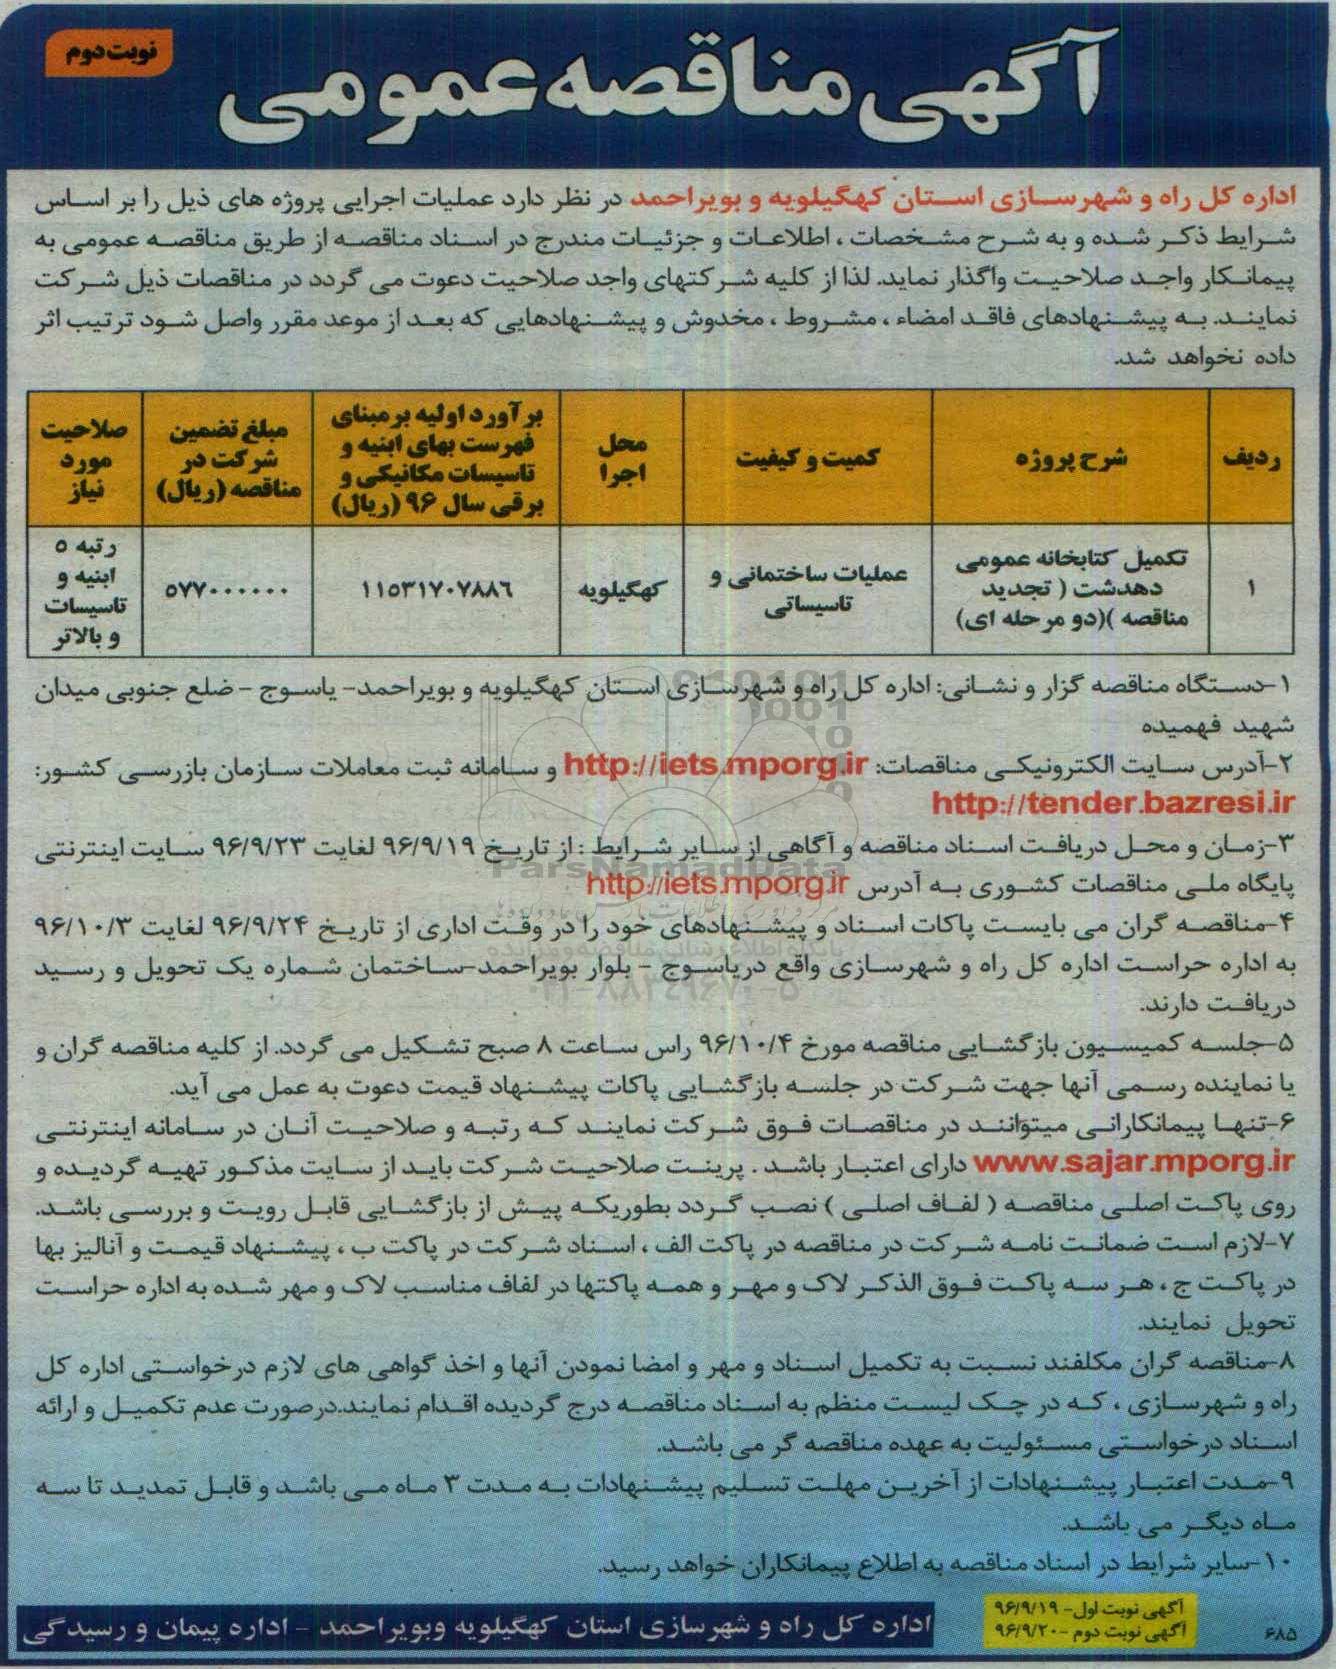 نوبت دوم
آگهی مناقصه عمومی
اداره کل راه و شهرسازی استان کهگیلویه و بویراحمد در نظر دارد عملیات اجرایی پروژه های ذیل را بر اساس
شرایط ذکر شده و به شرح مشخصات ، اطلاعات و جزئیات مندرج در اسناد مناقصه از طریق مناقصه عمومی به
پیمانکار واجد صلاحیت واگذار نماید. لذا از کلیه شرکتهای واجد صلاحیت دعوت می گردد در مناقصات ذیل شرکت
نمایند. به پیشنهادهای فاقد امضاء ، مشروط ، مخدوش و پیشنهادهایی که بعد از موعد مقرر واصل شود ترتیب اثر
داده نخواهد شد.
ردیف
شرح پروژه
کمیت و کیفیت
محل
اجرا
برآورد اولیه بر مبنای
فهرست بهای ابنیه و
تاسیسات مکانیکی و
برقی سال ۹۶ (ریال)
مبلغ تضمین
شرکت در
مناقصه (ریال)
صلاحیت
مورد
نیاز
۱
تکمیل کتابخانه عمومی
دهدشت ( تجدید
مناقصه )(دو مرحله ای)
عملیات ساختمانی و
تاسیساتی
کهگیلویه
۱۱۵۳۱۷۰۷۸۸۶
۵۷۷۰۰۰۰۰۰
رتبه ۵
ابنیه و
تاسیسات
و بالاتر
۱-دستگاه مناقصه گزار و نشانی: اداره کل راه و شهرسازی استان کهگیلویه و بویراحمد- یاسوج - ضلع جنوبی میدان
شهید فهمیده
۲-آدرس سایت الکترونیکی مناقصات: http://iets.mporg.ir و سامانه ثبت معاملات سازمان بازرسی کشور:
http://tender.bazresi.ir
۳-زمان و محل دریافت اسناد مناقصه و آگاهی از سایر شرایط : از تاریخ ۹۶/۹/۱۹ لغایت ۹۶/۹/۲۳ سایت اینترنتی
پایگاه ملی مناقصات کشوری به آدرس http://iets.mporg.ir
۴-مناقصه گران می بایست پاکات اسناد و پیشنهادهای خود را در وقت اداری از تاریخ ۹۶/۹/۲۴ لغایت ۹۶/۱۰/۳
به اداره حراست اداره کل راه و شهرسازی واقع دریاسوج - بلوار بویراحمد-ساختمان شماره یک تحویل و رسید
دریافت دارند.
۵-جلسه کمیسیون بازگشایی مناقصه مورخ ۹۶/۱۰/۴ راس ساعت ۸ صبح تشکیل می گردد. از کلیه مناقصه گران و
یا نماینده رسمی آنها جهت شرکت در جلسه بازگشایی پاکات پیشنهاد قیمت دعوت به عمل می آید.
۶-تنها پیمانکارانی میتوانند در مناقصات فوق شرکت نمایند که رتبه و صلاحیت آنان در سامانه اینترنتی
www.sajar.mporg.ir دارای اعتبار باشد . پرینت صلاحیت شرکت باید از سایت مذکور تهیه گردیده و
روی پاکت اصلی مناقصه ( لفاف اصلی ) نصب گردد بطوریکه پیش از بازگشایی قابل رویت و بررسی باشد.
۷-لازم است ضمانت نامه شرکت در مناقصه در پاکت الف ، اسناد شرکت در پاکت ب ، پیشنهاد قیمت و آنالیز بها
در پاکت ج ، هر سه پاکت فوق الذکر لاک و مهر و همه پاکتها در لفاف مناسب لاک و مهر شده به اداره حراست
تحویل نمایند.
۸-مناقصه گران مکلفند نسبت به تکمیل اسناد و مهر و امضا نمودن آنها و اخذ گواهی های لازم درخواستی اداره کل
راه و شهرسازی ، که در چک لیست منظم به اسناد مناقصه درج گردیده اقدام نمایند.درصورت عدم تکمیل و ارائه
اسناد درخواستی مسئولیت به عهده مناقصه گر می باشد.
۹-مدت اعتبار پیشنهادات از آخرین مهلت تسلیم پیشنهادات به مدت ۳ ماه می باشد و قابل تمدید تا سه
ماه دیگر می باشد.
۱۰-سایر شرایط در اسناد مناقصه به اطلاع پیمانکاران خواهد رسید.
۶۸۵
آگهی نوبت اول- ۹۶/۹/۱۹
آگهی نوبت دوم -۹۶/۹/۲۰
اداره کل راه و شهرسازی استان کهگیلویه وبویراحمد - اداره پیمان و رسیدگی
ParsNamadData